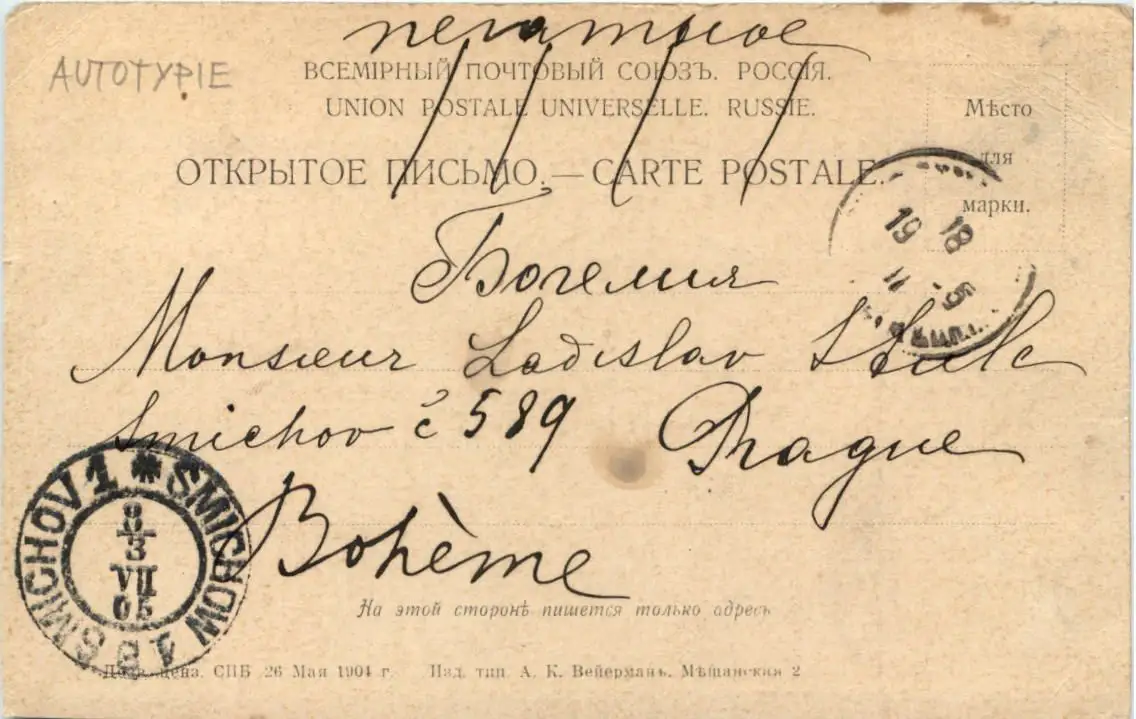 печатное
AUTOTYPIE
ВСЕМІРНЫЙ ПОЧТОВЫЙ СОЮЗЪ. РОССІЯ.
UNION POSTALE UNIVERSELLE. RUSSIE.
ОТКРЫТОЕ ПИСЬМО. — CARTE POSTALE.
Мѣсто
для
марки.
19 18
11 5
Богемия
Monsieur Ladislav
Smichov č 589 Prague
Bohême
SMICHOV 1 * SMICHOW
8/3
VII
05
На этой сторонѣ пишется только адресъ
Дозв. ценз. СПБ 26 Мая 1904 г. Изд. тип. А. К. Вейерманъ. Мѣщанская 2